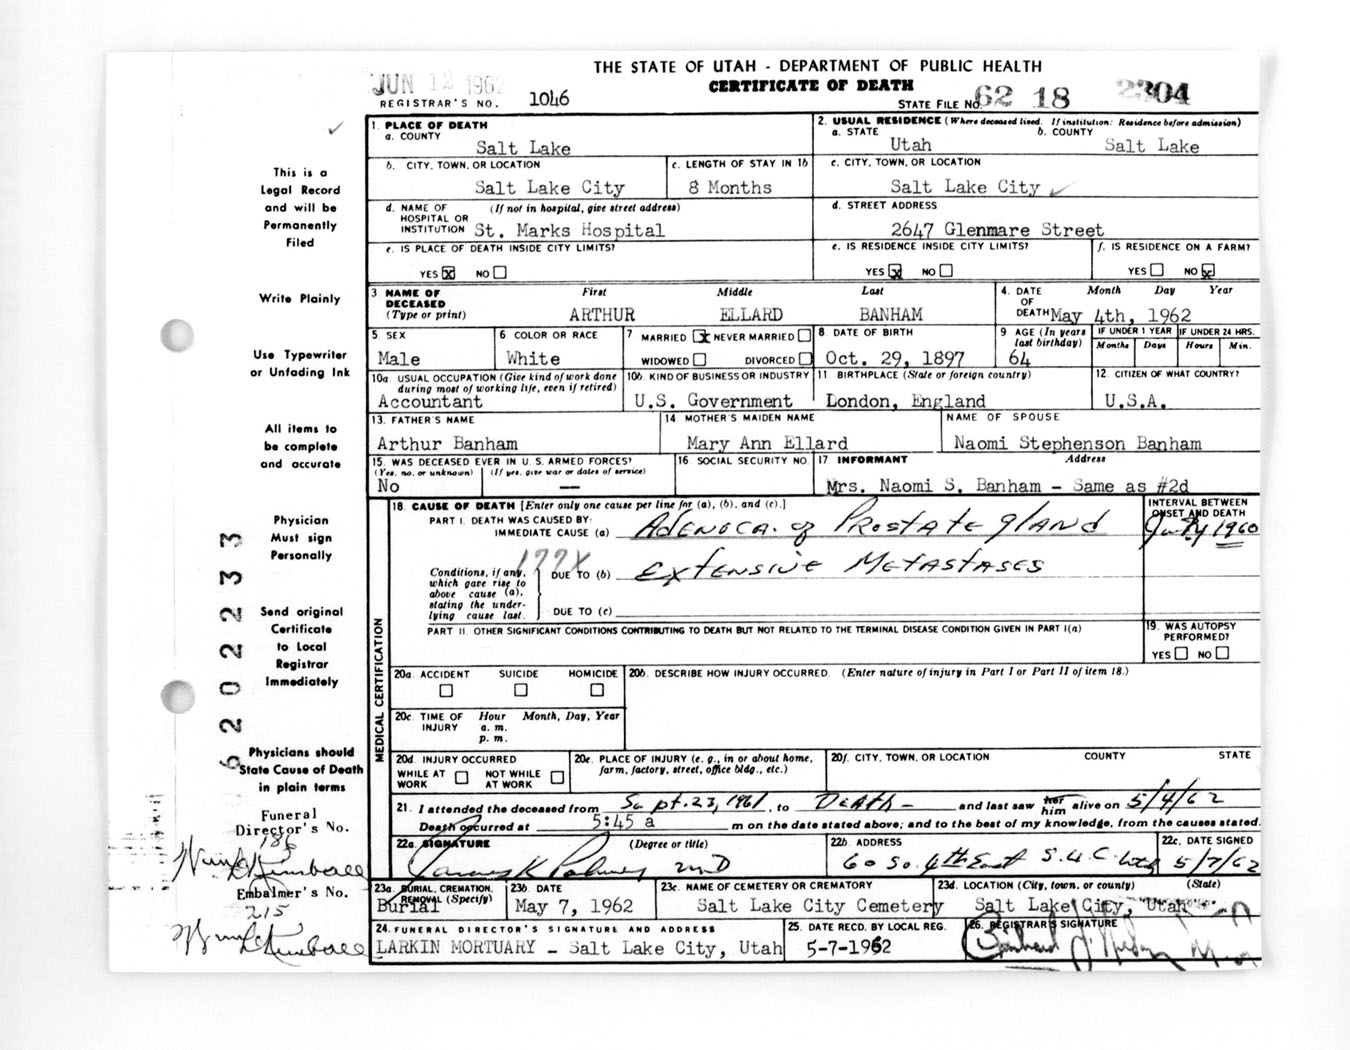 THE STATE OF UTAH - DEPARTMENT OF PUBLIC HEALTH
JUN 12 1962
CERTIFICATE OF DEATH
REGISTRAR'S NO. 1046
STATE FILE NO. 62 18 2304
This is a
Legal Record
and will be
Permanently
Filed
Write Plainly
Use Typewriter
or Unfading Ink
All items to
be complete
and accurate
Physician
Must sign
Personally
Send original
Certificate
to Local
Registrar
Immediately
Physicians should
State Cause of Death
in plain terms
Funeral
Director's No.
186
Embalmer's No.
215
6202233
1. PLACE OF DEATH
a. COUNTY
Salt Lake
2. USUAL RESIDENCE (Where deceased lived. If institution: Residence before admission)
a. STATE b. COUNTY
Utah Salt Lake
b. CITY, TOWN, OR LOCATION
Salt Lake City
c. LENGTH OF STAY IN 1b
8 Months
c. CITY, TOWN, OR LOCATION
Salt Lake City
d. NAME OF (If not in hospital, give street address)
HOSPITAL OR
INSTITUTION St. Marks Hospital
d. STREET ADDRESS
2647 Glenmare Street
e. IS PLACE OF DEATH INSIDE CITY LIMITS?
YES x NO
e. IS RESIDENCE INSIDE CITY LIMITS?
YES x NO
f. IS RESIDENCE ON A FARM?
YES NO x
3 NAME OF First Middle Last
DECEASED
(Type or print) ARTHUR ELLARD BANHAM
4. DATE Month Day Year
OF
DEATH May 4th, 1962
5. SEX
Male
6 COLOR OR RACE
White
7 MARRIED x NEVER MARRIED
WIDOWED DIVORCED
8 DATE OF BIRTH
Oct. 29, 1897
9 AGE (In years
last birthday)
64
IF UNDER 1 YEAR
Months Days
IF UNDER 24 HRS.
Hours Min.
10a. USUAL OCCUPATION (Give kind of work done
during most of working life, even if retired)
Accountant
10b. KIND OF BUSINESS OR INDUSTRY
U.S. Government
11 BIRTHPLACE (State or foreign country)
London, England
12. CITIZEN OF WHAT COUNTRY?
U.S.A.
13. FATHER'S NAME
Arthur Banham
14 MOTHER'S MAIDEN NAME
Mary Ann Ellard
NAME OF SPOUSE
Naomi Stephenson Banham
15. WAS DECEASED EVER IN U. S. ARMED FORCES?
(Yes, no, or unknown) (If yes, give war or dates of service)
No —
16 SOCIAL SECURITY NO.
17 INFORMANT Address
Mrs. Naomi S. Banham - Same as #2d
MEDICAL CERTIFICATION
18. CAUSE OF DEATH [Enter only one cause per line for (a), (b), and (c).]
PART I. DEATH WAS CAUSED BY:
IMMEDIATE CAUSE (a) Adenoca. of Prostate gland
INTERVAL BETWEEN
ONSET AND DEATH
1960
177X
Conditions, if any,
which gave rise to
above cause (a),
stating the under-
lying cause last.
DUE TO (b) Extensive Metastases
DUE TO (c)
PART II. OTHER SIGNIFICANT CONDITIONS CONTRIBUTING TO DEATH BUT NOT RELATED TO THE TERMINAL DISEASE CONDITION GIVEN IN PART I(a)
19. WAS AUTOPSY
PERFORMED?
YES NO
20a. ACCIDENT SUICIDE HOMICIDE
20b. DESCRIBE HOW INJURY OCCURRED. (Enter nature of injury in Part I or Part II of item 18.)
20c. TIME OF Hour Month, Day, Year
INJURY a. m.
p. m.
20d. INJURY OCCURRED
WHILE AT NOT WHILE
WORK AT WORK
20e. PLACE OF INJURY (e. g., in or about home,
farm, factory, street, office bldg., etc.)
20f. CITY, TOWN, OR LOCATION COUNTY STATE
21. I attended the deceased from Sept. 23, 1961, to Death - and last saw her him alive on 5/4/62
Death occurred at 5:45 a m on the date stated above; and to the best of my knowledge, from the causes stated.
22a. SIGNATURE (Degree or title)
MD
22b. ADDRESS
60 So. 4th East S.L.C. Utah
22c. DATE SIGNED
5/7/62
23a. BURIAL, CREMATION,
REMOVAL (Specify)
Burial
23b. DATE
May 7, 1962
23c. NAME OF CEMETERY OR CREMATORY
Salt Lake City Cemetery
23d. LOCATION (City, town, or county) (State)
Salt Lake City, Utah
24. FUNERAL DIRECTOR'S SIGNATURE AND ADDRESS
LARKIN MORTUARY - Salt Lake City, Utah
25. DATE RECD. BY LOCAL REG.
5-7-1962
26. REGISTRAR'S SIGNATURE